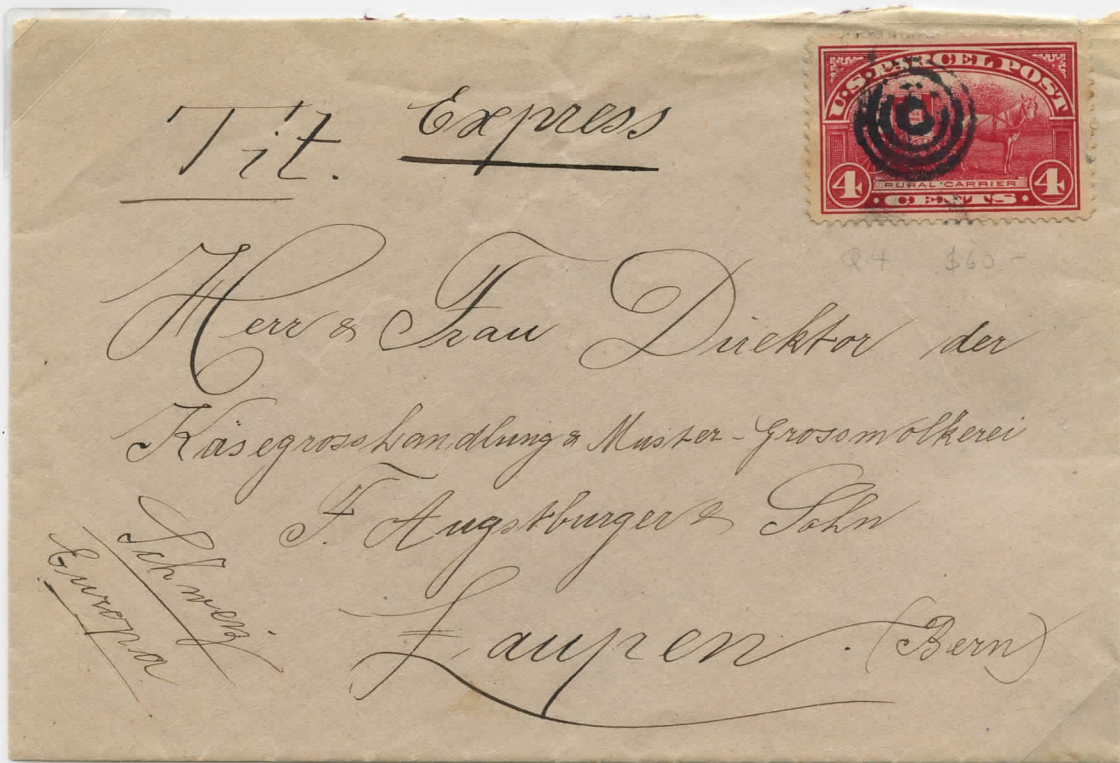 Tit. Express
U.S. PARCEL POST
4 RURAL CARRIER 4
CENTS
Q4 $60-
Herr & Frau Direktor der
Käsegrosshandlung & Muster-Grossmolkerei
F. Augstburger & Sohn
Laupen. (Bern)
Schweiz
Europa